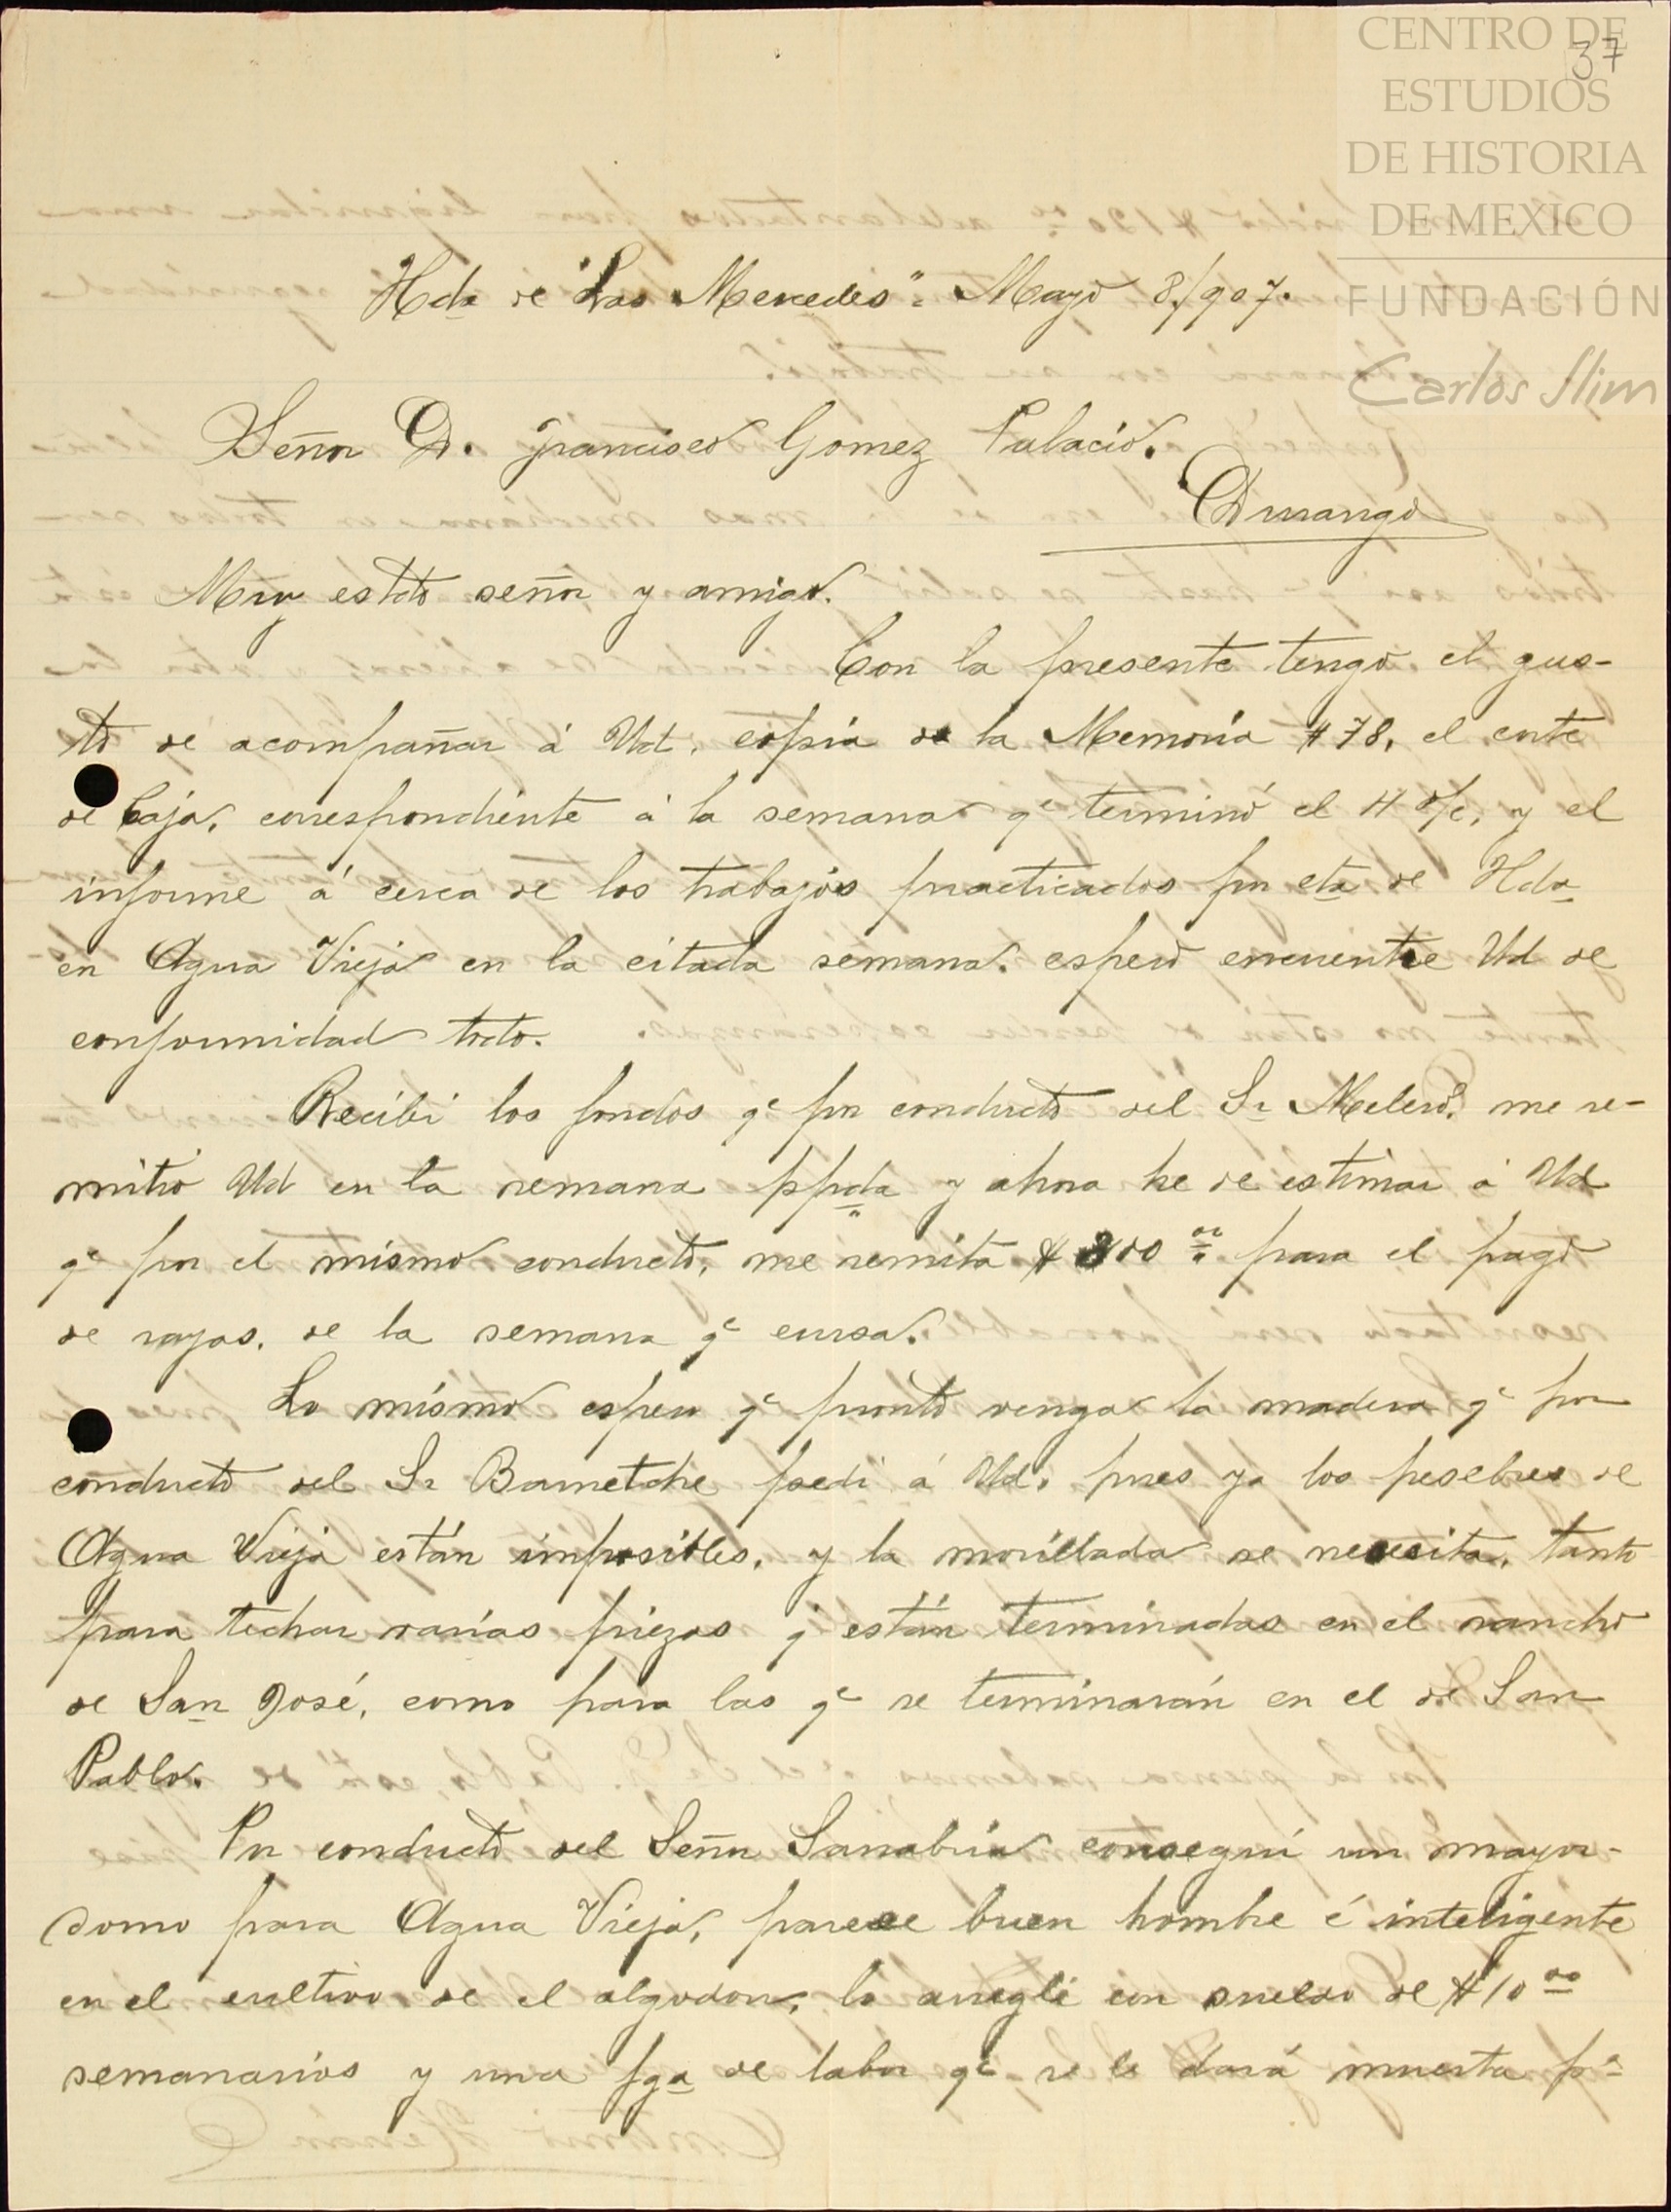 CENTRO DE
ESTUDIOS
DE HISTORIA
DE MEXICO
FUNDACIÓN
Carlos Slim
37
Hda de "Las Mercedes" = Mayo 8/907.
Señor D. Francisco Gomez Palacio.
Durango
Muy estdo señor y amigo.
Con la presente tengo el gus-
to de acompañar á Ud. copia de la Memoria #78, el corte
de Caja, correspondiente á la semana qe terminó el 4 d/c, y el
informe á cerca de los trabajos practicados por eta de Hda
en Agua Vieja en la citada semana. espero encuentre Ud de
conformidad todo.
Recibi los fondos qe por conducto del Sr Melero, me re-
mitió Ud en la semana ppda y ahora he de estimar á Ud
qe por el mismo conducto, me remita $ 300 00 para el pago
de rayas, de la semana qe cursa.
Lo mismo espero qe pronto venga la madera qe por
conducto del Sr Barnetche pedi á Ud. pues ya los pesebres de
Agua Vieja están imposibles, y la morillada se necesita, tanto
para techar varias piezas q están terminadas en el rancho
de San José, como para las qe se terminarán en el de San
Pablo.
Por conducto del Señor Sanabria conseguí un mayor-
domo para Agua Vieja, parece buen hombre é inteligente
en el cultivo de el algodon, lo arreglé con sueldo de $10 00
semanarios y una fga de labor qe se le dará muerta pa